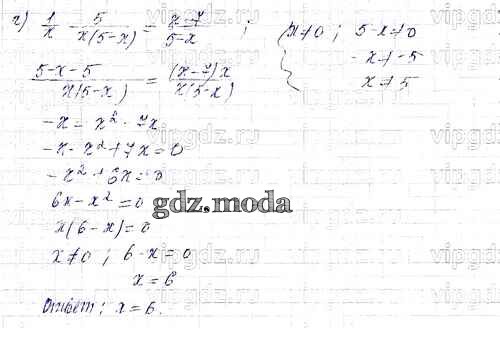 г) 1/x - 5/x(5-x) = x-7/5-x ; { x≠0 ; 5-x≠0
-x≠-5
x≠5
5-x-5/x(5-x) = (x-7)x/x(5-x)
-x = x² - 7x
-x - x² + 7x = 0
-x² + 6x = 0
6x - x² = 0
x(6-x) = 0
x≠0 ; 6-x = 0
x = 6
Ответ: x = 6.
gdz.moda
vipgdz